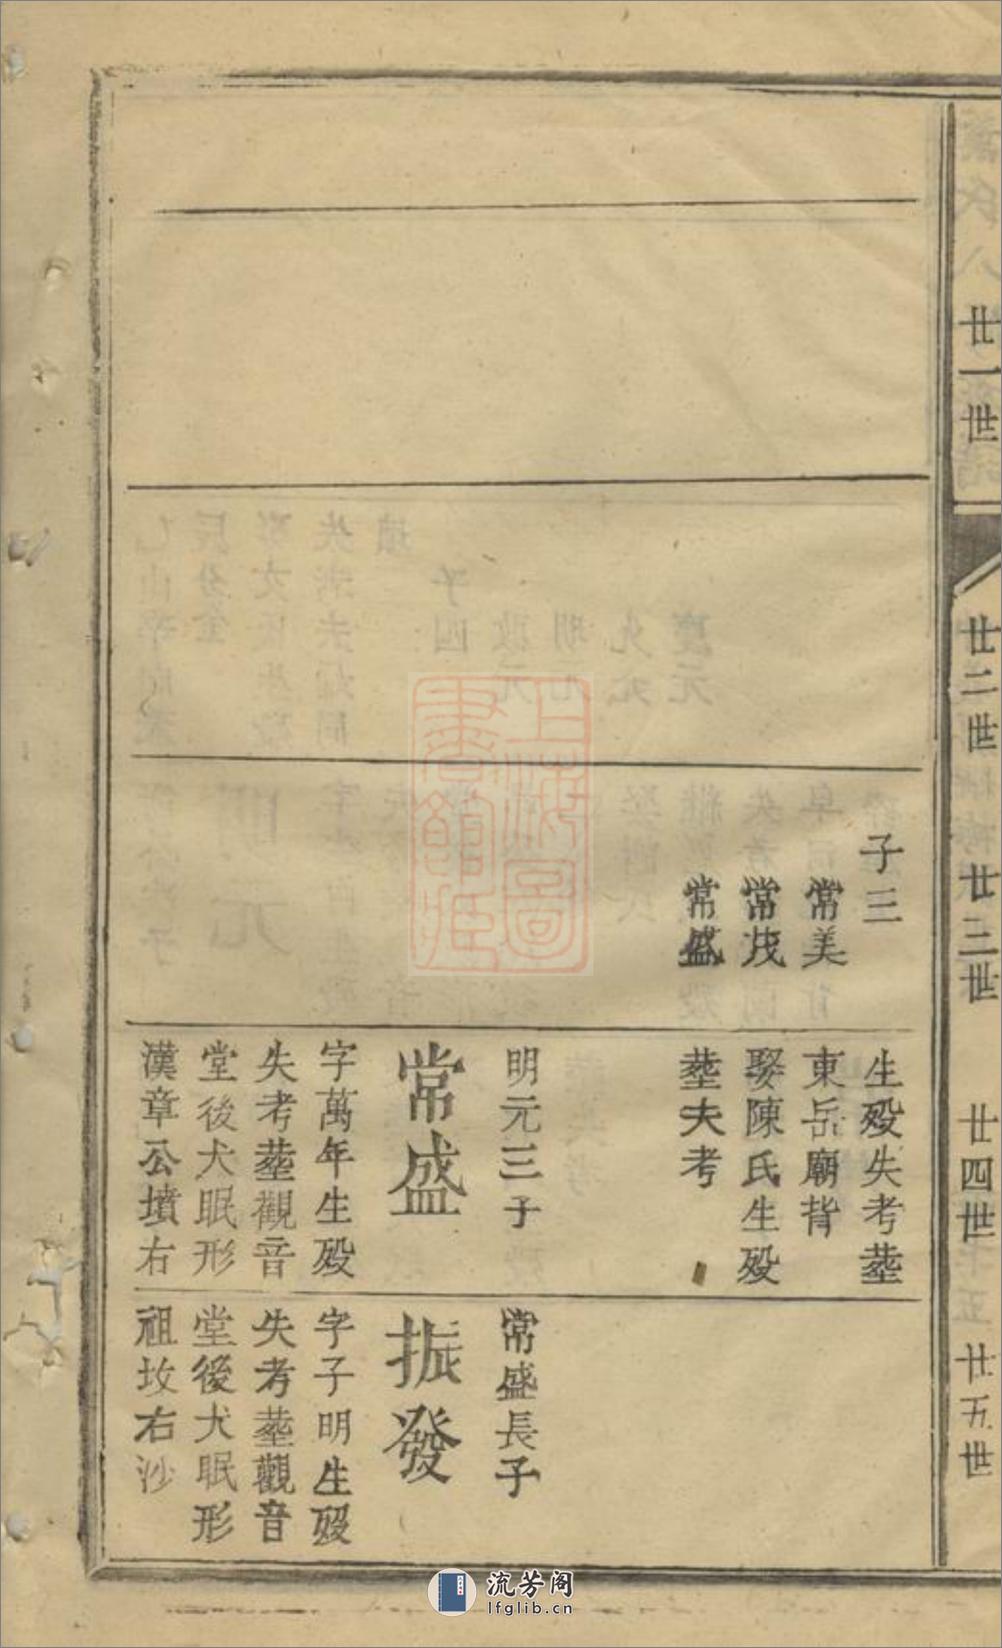 廿一世
廿二世
廿三世
廿四世
廿五世
子三
常美
常茂
常盛
生殁失考塟
東岳廟背
娶陳氏生殁
塟失考
明元三子
常盛
字萬年生殁
失考塟觀音
堂後犬眠形
漢章公墳右
常盛長子
振發
字子明生殁
失考塟觀音
堂後犬眠形
祖坟右沙
上海圖書館藏
流芳阁
lfglib.cn